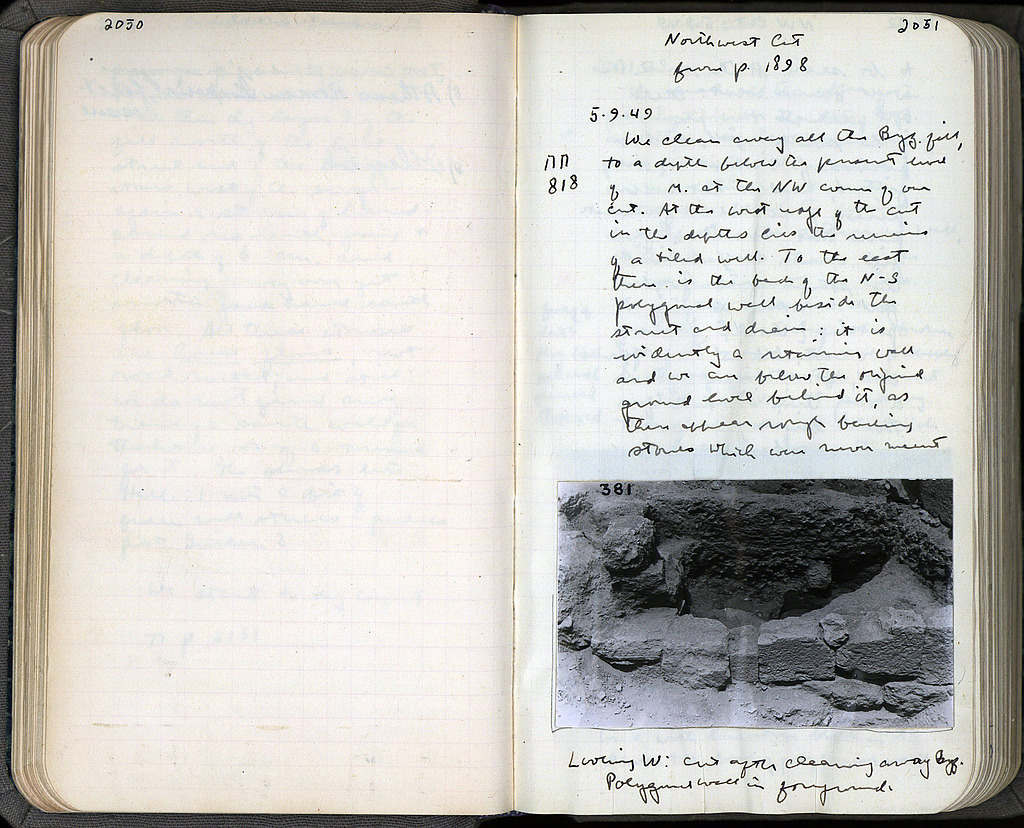 2050
2051
Northwest Cut
from p. 1898
5.9.49
We clean away all the Byz. fill,
ΠΠ
818
to a depth below the present level
of M. at the NW corner of our
cut. At the west edge of the cut
in the depths lies the remains
of a tiled well. To the east
there is the back of the N-S
polygonal wall beside the
street and drain: it is
evidently a retaining wall
and we are below the original
ground level behind it, as
there appear rough backing
stones which were never meant
381
Looking W: cut after clearing away Byz.
Polygonal wall in foreground.